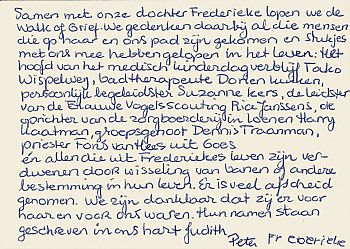 Samen met onze dochter Frederieke lopen we de
Walk of Grief. We gedenken daarbij al die mensen
die op haar en ons pad zijn gekomen en stukjes
met ons mee hebben gelopen in het leven: Het
hoofd van het medisch kinderdagverblijf Tako
Wispelweg, badtherapeute Dorien
persoonlijk begeleidster Suzanne Kers, de leidster
van de Blauwe Vogels scouting Ria Janssens, de
oprichter van de zorgboerderij in Loenen Harry
Kaatman, groepsgenoot Dennis Traanman,
priester Fons van Hees uit Goes
en allen die uit Friederiekes leven zijn ver-
dwenen door wisseling van banen of andere
bestemming in hun leven. Er is veel afscheid
genomen. We zijn dankbaar dat zij er voor
haar en voor ons waren. Hun namen staan
geschreven in ons hart Judith
Peter Frederieke